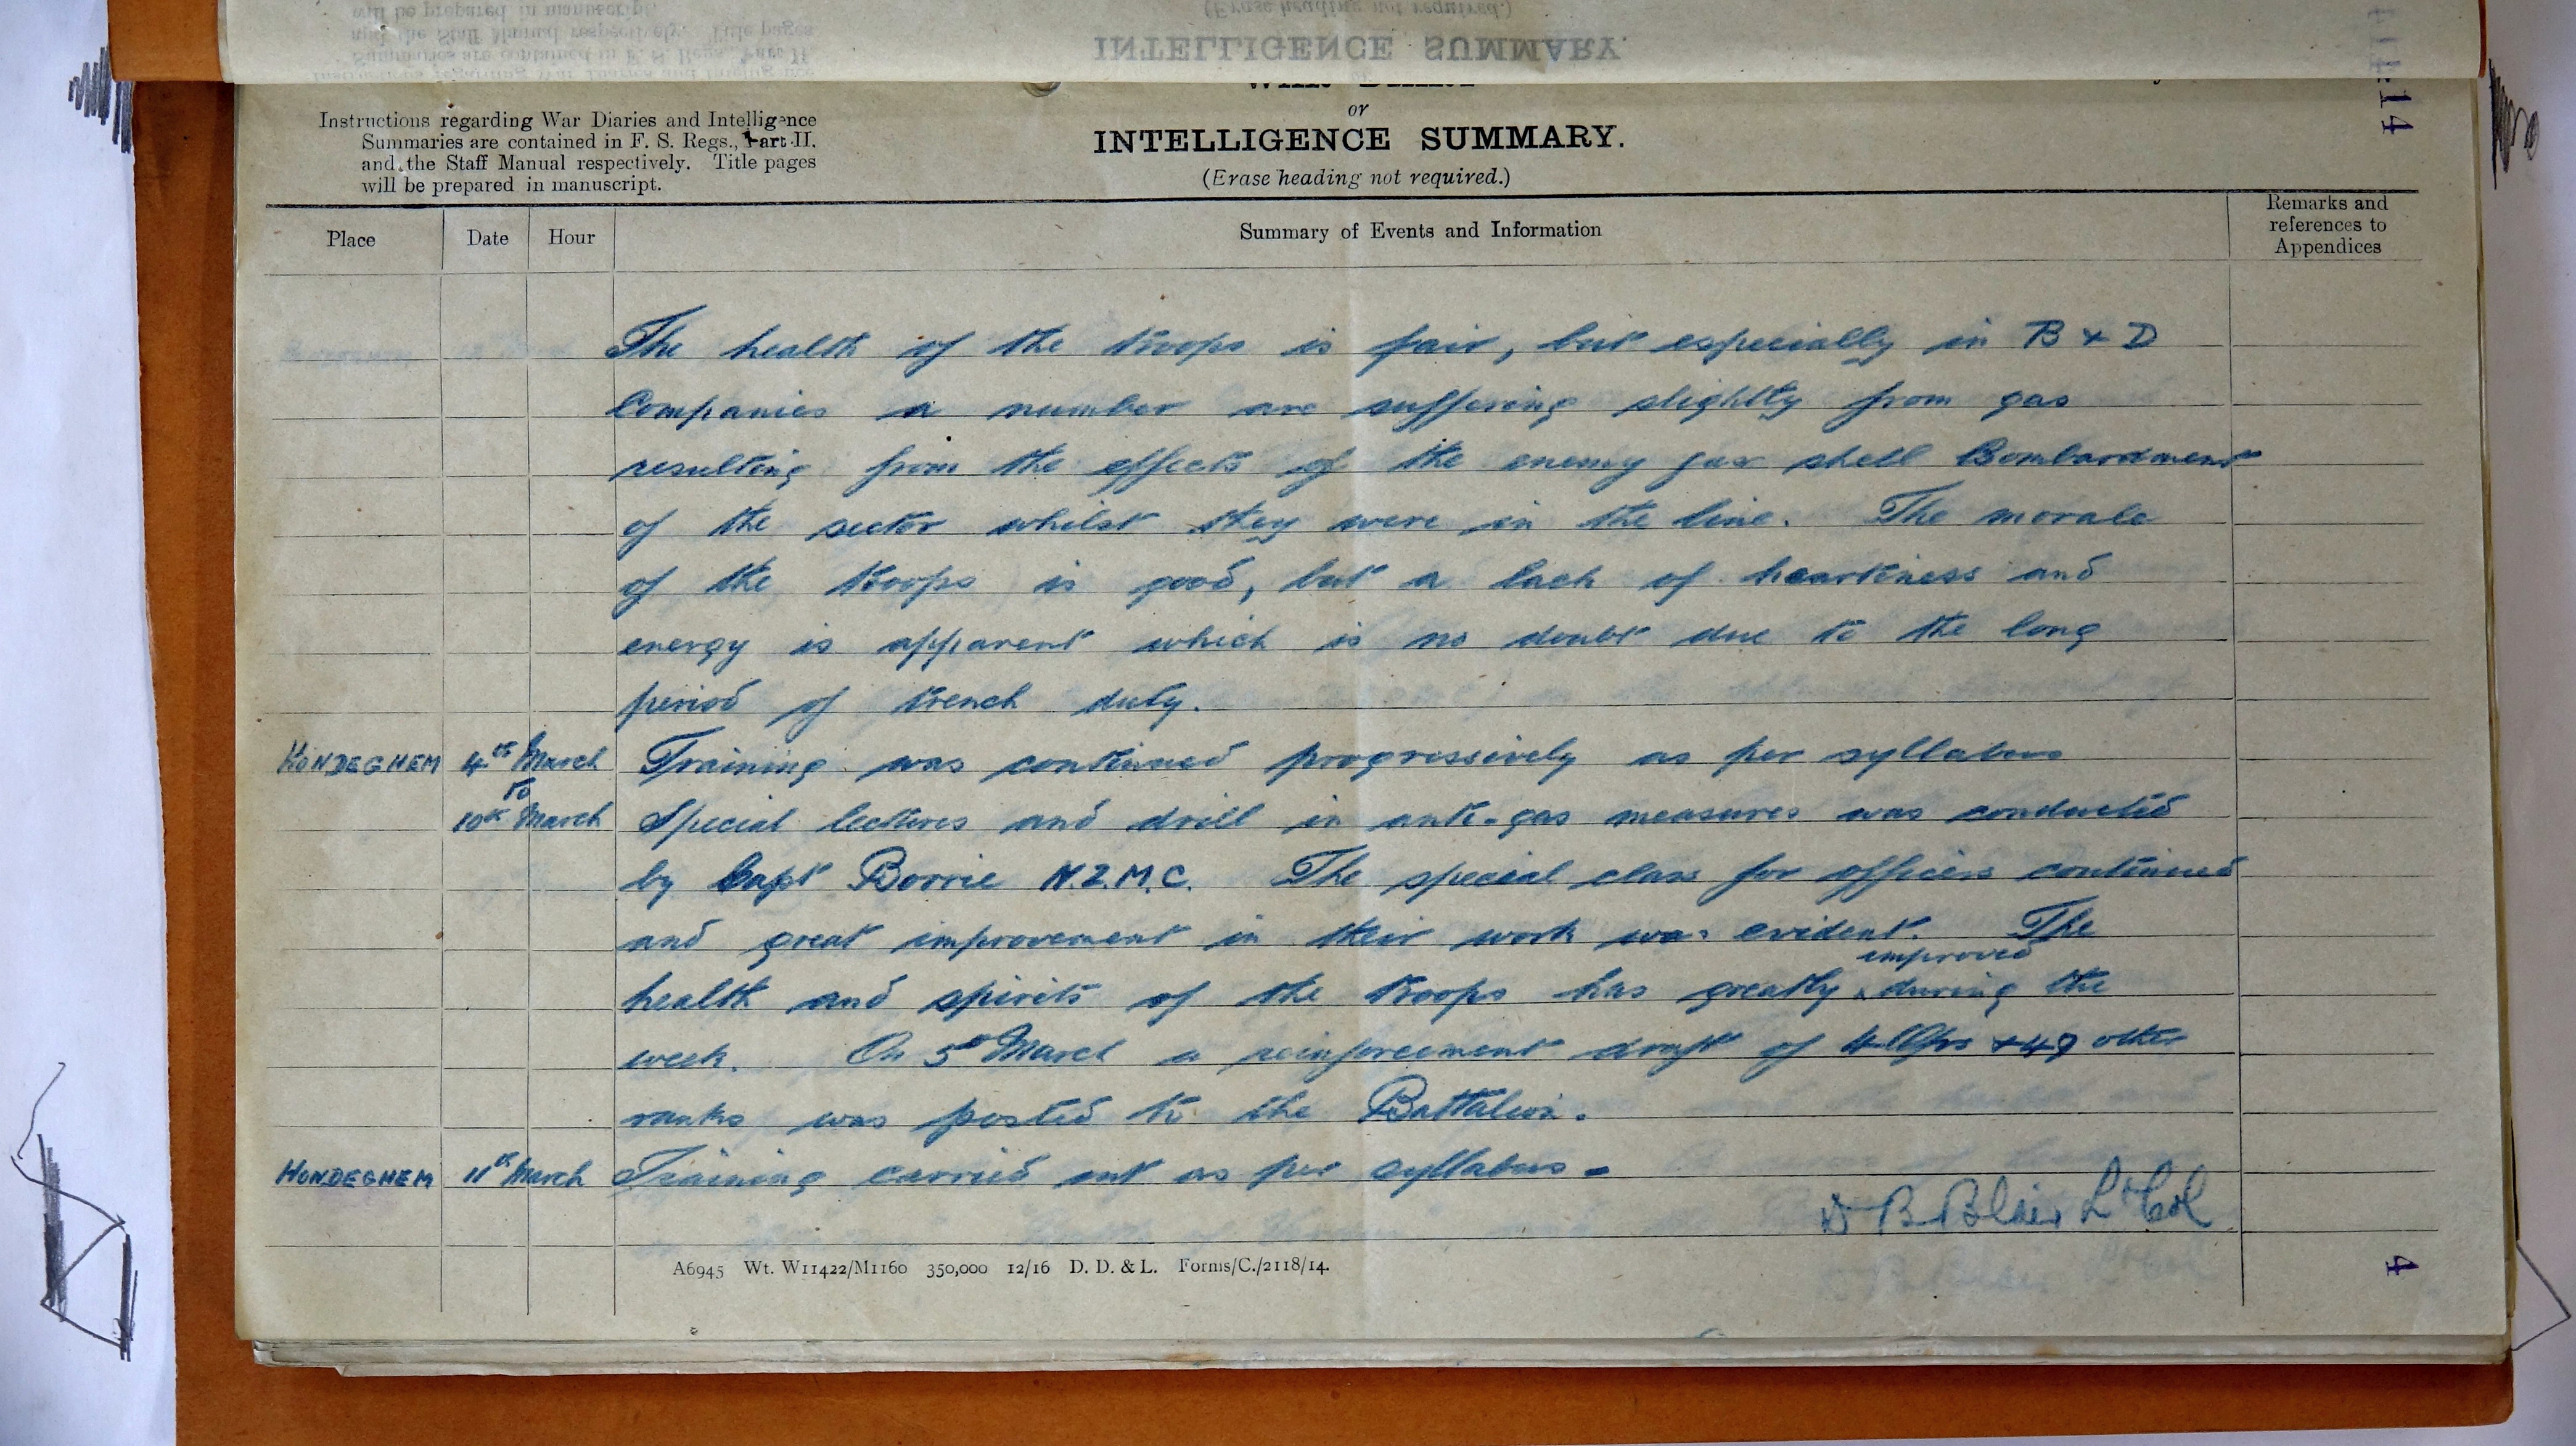 INTELLIGENCE SUMMARY.
Instructions regarding War Diaries and Intelligence
Summaries are contained in F. S. Regs., Part II.
and the Staff Manual respectively. Title pages
will be prepared in manuscript.
or
INTELLIGENCE SUMMARY.
(Erase heading not required.)
Place Date Hour Summary of Events and Information Remarks and references to Appendices
The health of the troops is fair, but especially in B & D
Companies a number are suffering slightly from gas
resulting from the effects of the enemy gas shell Bombardment
of the sector whilst they were in the line. The morale
of the troops is good, but a lack of heartiness and
energy is apparent which is no doubt due to the long
period of trench duty.
HONDEGHEM 4th March Training was continued progressively as per syllabus
to
10th March Special lectures and drill in anti-gas measures was conducted
by Capt Borrie N.Z.M.C. The special class for officers continued
and great improvement in their work was evident. The
improved
health and spirits of the troops has greatly during the
week. On 5th March a reinforcement draft of 4 Offrs & 49 other
ranks was posted to the Battalion.
HONDEGHEM 11th March Training carried out as per syllabus.
D B Blair Lt Col
A6945 Wt. W11422/M1160 350,000 12/16 D. D. & L. Forms/C./2118/14.
14
4